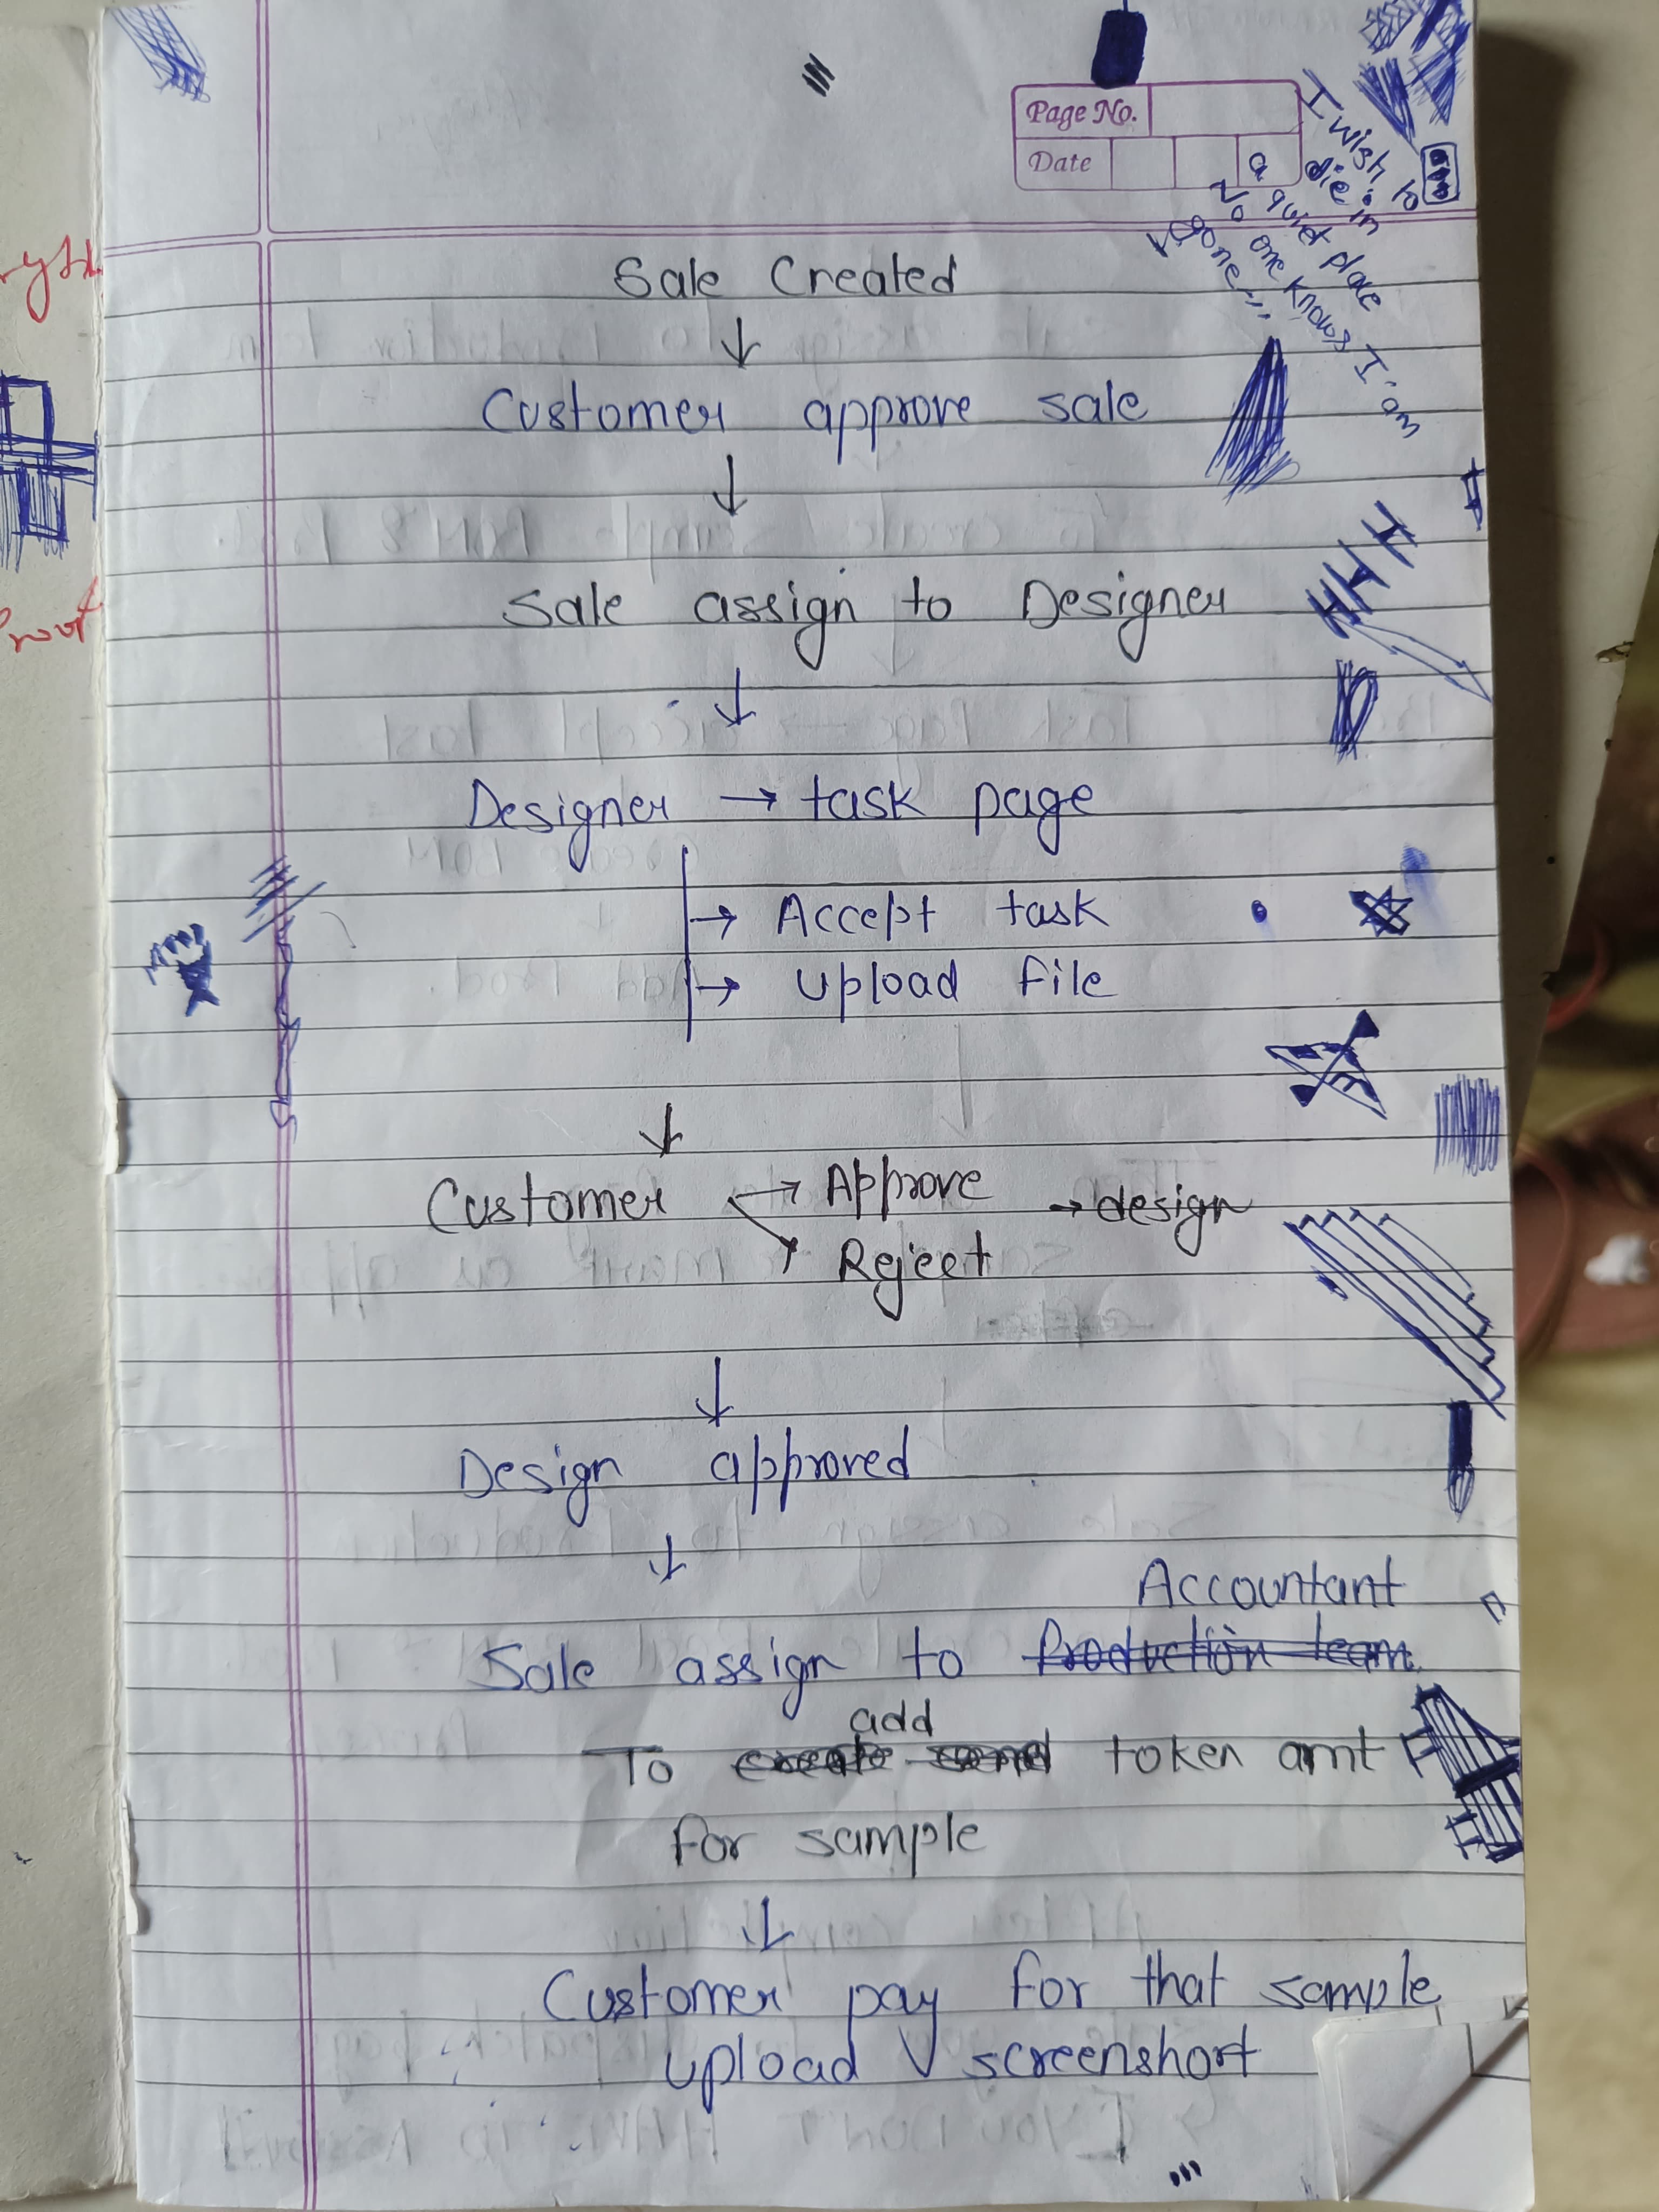 Page No.
Date
I wish to
die in
a quiet place
No one knows I'am
gone...
Sale Created
↓
Customer approve sale
↓
Sale assign to Designer
↓
Designer → task page
→ Accept task
→ Upload file
↓
Customer → Approve → design
→ Reject
↓
Design approved
↓
Accountant
Sale assign to Production team
add
To create send token amt
for sample
↓
Customer pay for that sample
upload screenshort